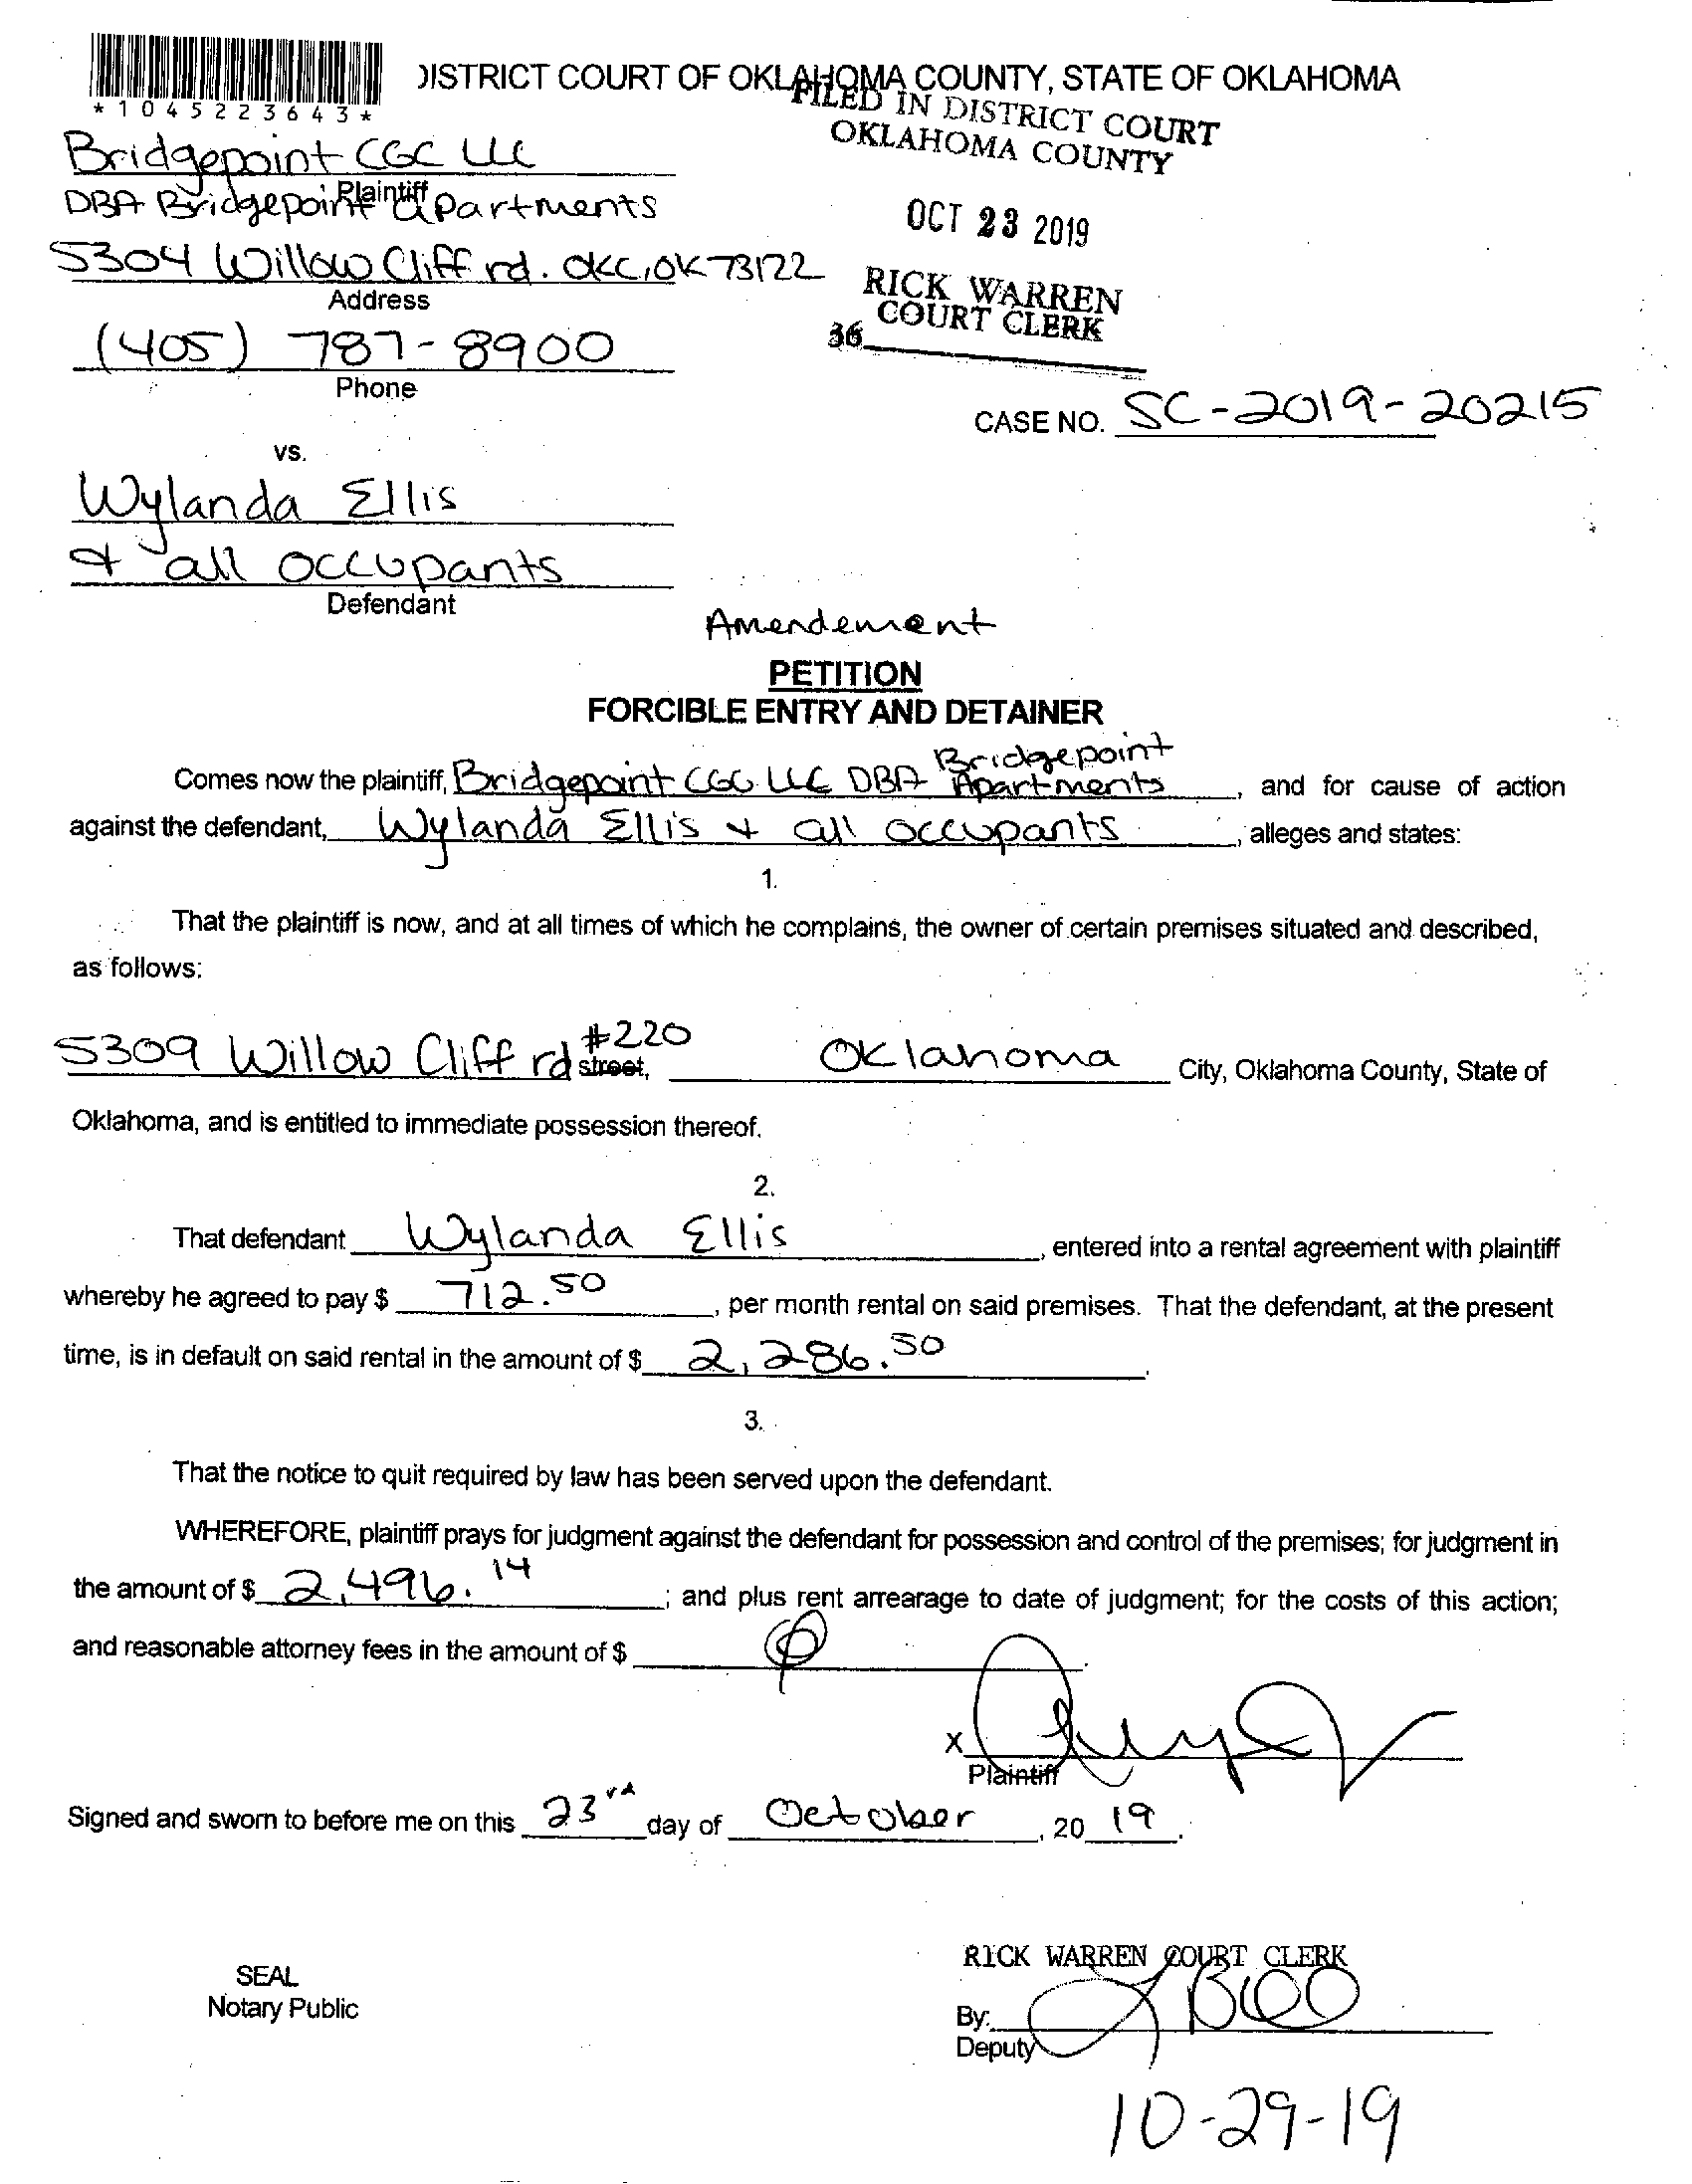 DISTRICT COURT OF OKLAHOMA COUNTY, STATE OF OKLAHOMA
*1045223643*
FILED IN DISTRICT COURT
OKLAHOMA COUNTY
OCT 23 2019
RICK WARREN
COURT CLERK
36
Bridgepoint CGC LLC
Plaintiff
DBA Bridgepoint apartments
5304 Willow Cliff rd. OKC, OK 73122
Address
(405) 787-8900
Phone
CASE NO. SC-2019-20215
vs.
Wylanda Ellis
& all occupants
Defendant
Amendement
PETITION
FORCIBLE ENTRY AND DETAINER
Comes now the plaintiff, Bridgepoint CGC LLC DBA Bridgepoint Apartments, and for cause of action
against the defendant, Wylanda Ellis + all occupants, alleges and states:
1.
That the plaintiff is now, and at all times of which he complains, the owner of certain premises situated and described,
as follows:
5309 Willow Cliff rd #220 street, Oklahoma City, Oklahoma County, State of
Oklahoma, and is entitled to immediate possession thereof.
2.
That defendant Wylanda Ellis, entered into a rental agreement with plaintiff
whereby he agreed to pay $ 712.50, per month rental on said premises. That the defendant, at the present
time, is in default on said rental in the amount of $ 2,286.50.
3.
That the notice to quit required by law has been served upon the defendant.
WHEREFORE, plaintiff prays for judgment against the defendant for possession and control of the premises; for judgment in
the amount of $ 2,496.14; and plus rent arrearage to date of judgment; for the costs of this action;
and reasonable attorney fees in the amount of $
X
Plaintiff
Signed and sworn to before me on this 23rd day of October, 20 19.
SEAL
Notary Public
RICK WARREN COURT CLERK
By:
Deputy
10-29-19